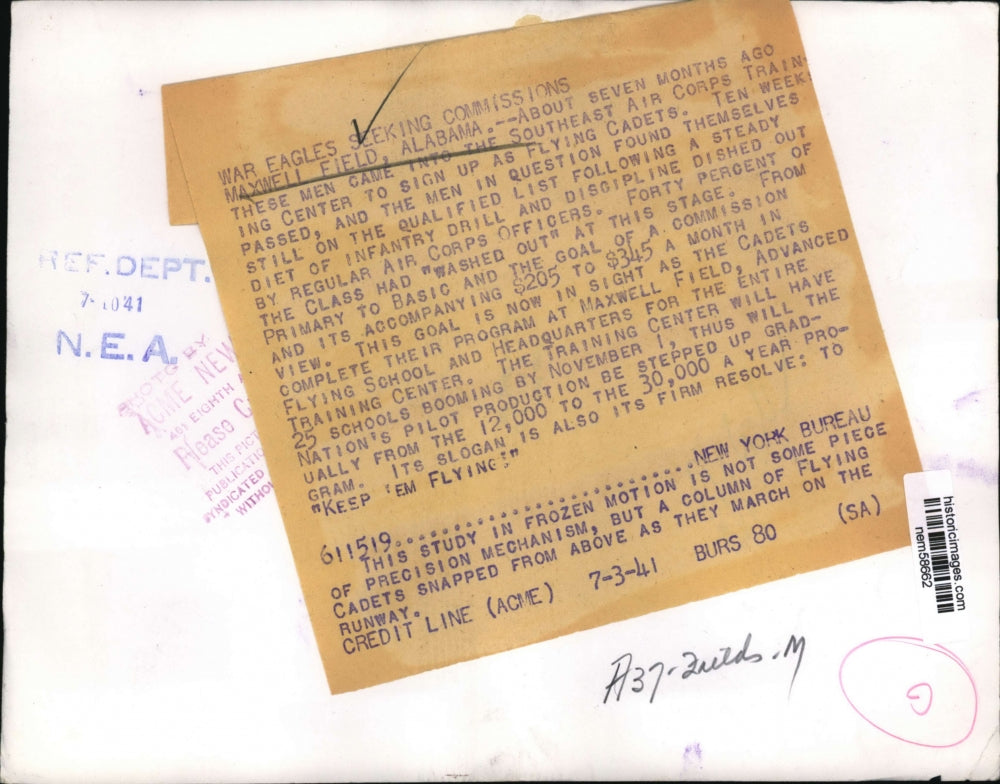 WAR EAGLES SEEKING COMMISSIONS
MAXWELL FIELD, ALABAMA.--ABOUT SEVEN MONTHS AGO
THESE MEN CAME INTO THE SOUTHEAST AIR CORPS TRAIN-
ING CENTER TO SIGN UP AS FLYING CADETS. TEN WEEKS
PASSED, AND THE MEN IN QUESTION FOUND THEMSELVES
STILL ON THE QUALIFIED LIST FOLLOWING A STEADY
DIET OF INFANTRY DRILL AND DISCIPLINE DISHED OUT
BY REGULAR AIR CORPS OFFICERS. FORTY PERCENT OF
THE CLASS HAD "WASHED OUT" AT THIS STAGE. FROM
PRIMARY TO BASIC AND THE GOAL OF A COMMISSION
AND ITS ACCOMPANYING $205 TO $345 A MONTH IN
VIEW. THIS GOAL IS NOW IN SIGHT AS THE CADETS
COMPLETE THEIR PROGRAM AT MAXWELL FIELD, ADVANCED
FLYING SCHOOL AND HEADQUARTERS FOR THE ENTIRE
TRAINING CENTER. THE TRAINING CENTER WILL HAVE
25 SCHOOLS BOOMING BY NOVEMBER 1, THUS WILL THE
NATION'S PILOT PRODUCTION BE STEPPED UP GRAD-
UALLY FROM THE 12,000 TO THE 30,000 A YEAR PRO-
GRAM. ITS SLOGAN IS ALSO ITS FIRM RESOLVE: TO
"KEEP 'EM FLYING!"
611519..............................NEW YORK BUREAU
THIS STUDY IN FROZEN MOTION IS NOT SOME PIECE
OF PRECISION MECHANISM, BUT A COLUMN OF FLYING
CADETS SNAPPED FROM ABOVE AS THEY MARCH ON THE
RUNWAY.
CREDIT LINE (ACME) 7-3-41 BURS 80 (SA)
REF. DEPT.
7- 10 41
N.E.A.
PHOTO BY
ACME NEW
461 EIGHTH
Please
THIS PICT
PUBLICATIO
SYNDICATED
WITHO
historicimages.com
nem58662
A37-Fields-M